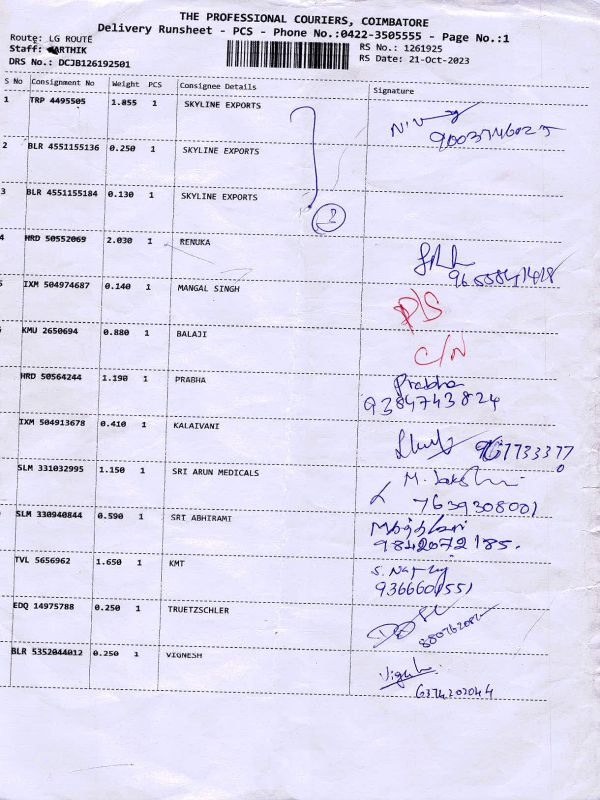 THE PROFESSIONAL COURIERS, COIMBATORE
Delivery Runsheet - PCS - Phone No.:0422-3505555 - Page No.:1
Route: LG ROUTE
RS No.: 1261925
Staff: KARTHIK
RS Date: 21-Oct-2023
DRS No.: DCJB126192501
S No Consignment No Weight PCS Consignee Details Signature
1 TRP 4495505 1.855 1 SKYLINE EXPORTS
2 BLR 4551155136 0.250 1 SKYLINE EXPORTS
3 BLR 4551155184 0.130 1 SKYLINE EXPORTS
4 HRD 50552069 2.030 1 RENUKA
IXM 504974687 0.140 1 MANGAL SINGH
P/S
KMU 2650694 0.880 1 BALAJI
C/N
HRD 50564244 1.190 1 PRABHA
Prabha
9384743824
IXM 504913678 0.410 1 KALAIVANI
SLM 331032995 1.150 1 SRI ARUN MEDICALS
7639308001
SLM 330940844 0.590 1 SRI ABHIRAMI
9842072185.
TVL 5656962 1.650 1 KMT
9366601551
EDQ 14975788 0.250 1 TRUETZSCHLER
BLR 5352044012 0.250 1 VIGNESH
6374202044